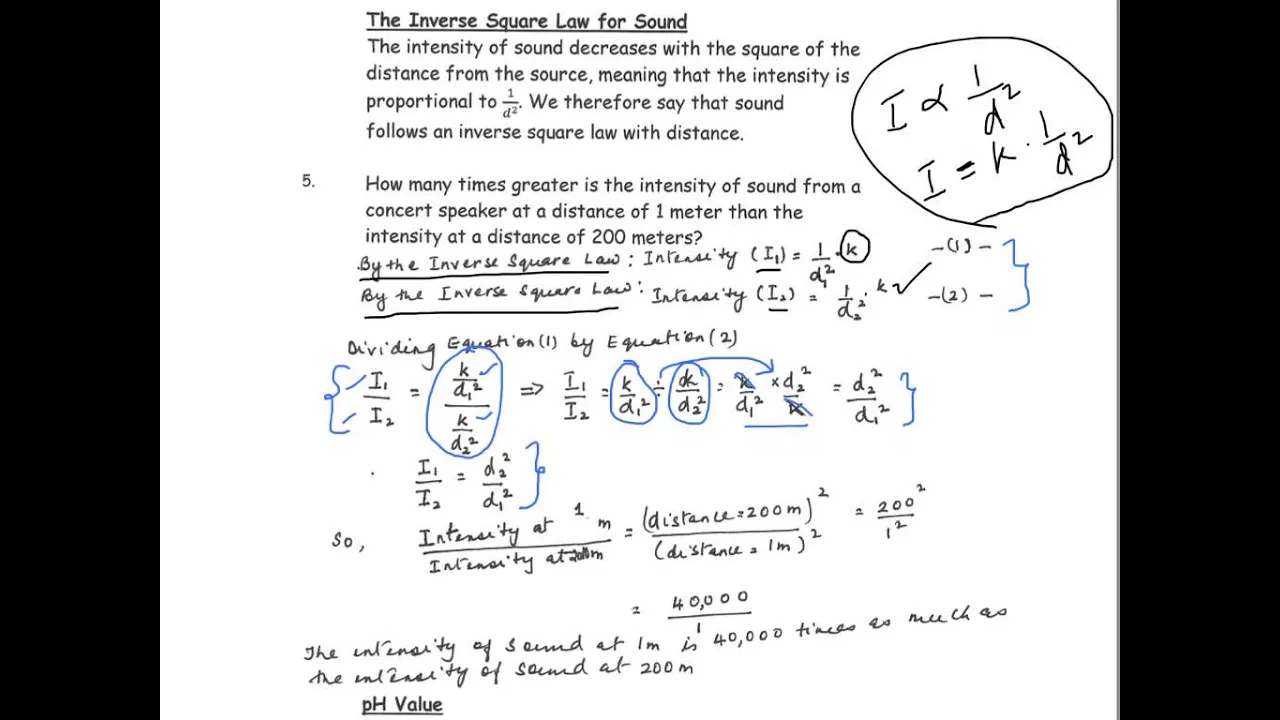 The Inverse Square Law for Sound
The intensity of sound decreases with the square of the
distance from the source, meaning that the intensity is
proportional to 1/d². We therefore say that sound
follows an inverse square law with distance.
I ∝ 1/d²
I = k · 1/d²
5. How many times greater is the intensity of sound from a
concert speaker at a distance of 1 meter than the
intensity at a distance of 200 meters?
By the Inverse Square Law : Intensity (I₁) = 1/d₁² · k -(1)-
By the Inverse Square Law : Intensity (I₂) = 1/d₂² · k -(2)-
Dividing Equation(1) by Equation(2)
I₁/I₂ = (k/d₁²)/(k/d₂²) ⇒ I₁/I₂ = k/d₁² ÷ k/d₂² = k/d₁² × d₂²/k = d₂²/d₁²
I₁/I₂ = d₂²/d₁²
So, Intensity at 1 m / Intensity at 200m = (distance=200m)² / (distance = 1m)² = 200²/1²
= 40,000/1
The intensity of sound at 1m is 40,000 times as much as
the intensity of sound at 200m
pH Value